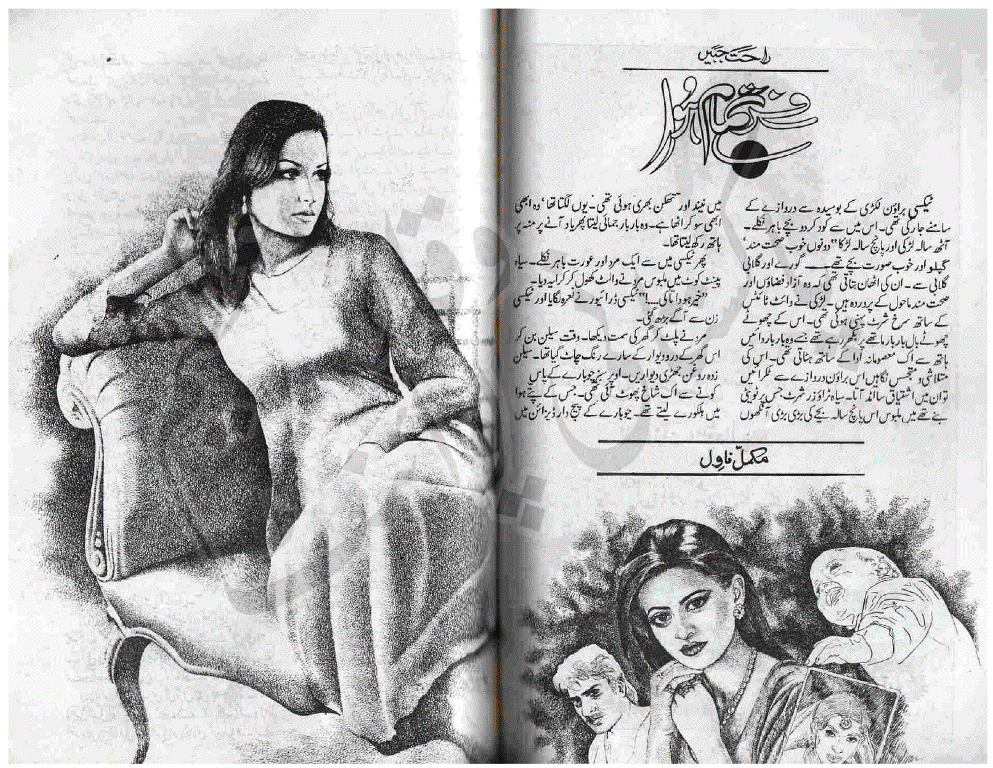 راحت جبیں
سفر تمام ہوا
ٹیکسی براؤن لکڑی کے بوسیدہ سے دروازے کے
سامنے جا رکی تھی۔ اس میں سے کود کر دو بچے باہر نکلے۔
آٹھ سالہ لڑکی اور پانچ سالہ لڑکا" دونوں خوب صحت مند'
گپلو اور خوب صورت بچے تھے۔ گورے اور گلابی
گلابی سے۔ ان کی اٹھان بتاتی تھی کہ وہ آزاد فضاؤں اور
صحت مند ماحول کے پروردہ ہیں۔ لڑکی نے وائٹ ٹائٹس
کے ساتھ سرخ شرٹ پہنی ہوئی تھی۔ اس کے چھوٹے
چھوٹے بال بار بار ماتھے پر بکھر رہے تھے جسے وہ بار بار دائیں
ہاتھ سے اک معصومانہ ادا کے ساتھ ہٹاتی تھی۔ اس کی
متلاشی و متجسس نگاہیں اس براؤن دروازے سے ٹکرائیں
تو ان میں اشتیاق سا امڈ آیا۔ سیاہ ٹراؤزر شرٹ جس پر
بنے تھے میں ملبوس اس پانچ سالہ بچے کی بڑی بڑی آنکھوں
میں نیند اور تھکن بھری ہوئی تھی۔ یوں لگتا تھا' وہ ابھی
ابھی سو کر اٹھا ہے۔ وہ بار بار جمائی لیتا پھر یاد آنے پر منہ پر
ہاتھ رکھ لیتا تھا۔
پھر ٹیکسی میں سے ایک مرد اور عورت باہر نکلے۔ سیاہ
پینٹ کوٹ میں ملبوس مرد نے والٹ کھول کر کرایہ دیا۔
"خیر ہو داتا کی۔۔۔!" ٹیکسی ڈرائیور نے نعرہ لگایا اور ٹیکسی
زن سے آگے بڑھ گئی۔
مرد نے پلٹ کر گھر کی سمت دیکھا۔ وقت سیلن بن کر
اس گھر کے در و دیوار کے سارے رنگ چاٹ گیا تھا۔ سیلن
زدہ روغن جھڑی دیواریں۔ اوپر چوبارے کے پاس
کونے سے اک شاخ پھوٹ آئی تھی۔ جس کے پتے ہوا
میں ہلکورے لیتے تھے۔ چوبارے کے پیچ دار ڈیزائن میں
مکمل ناول